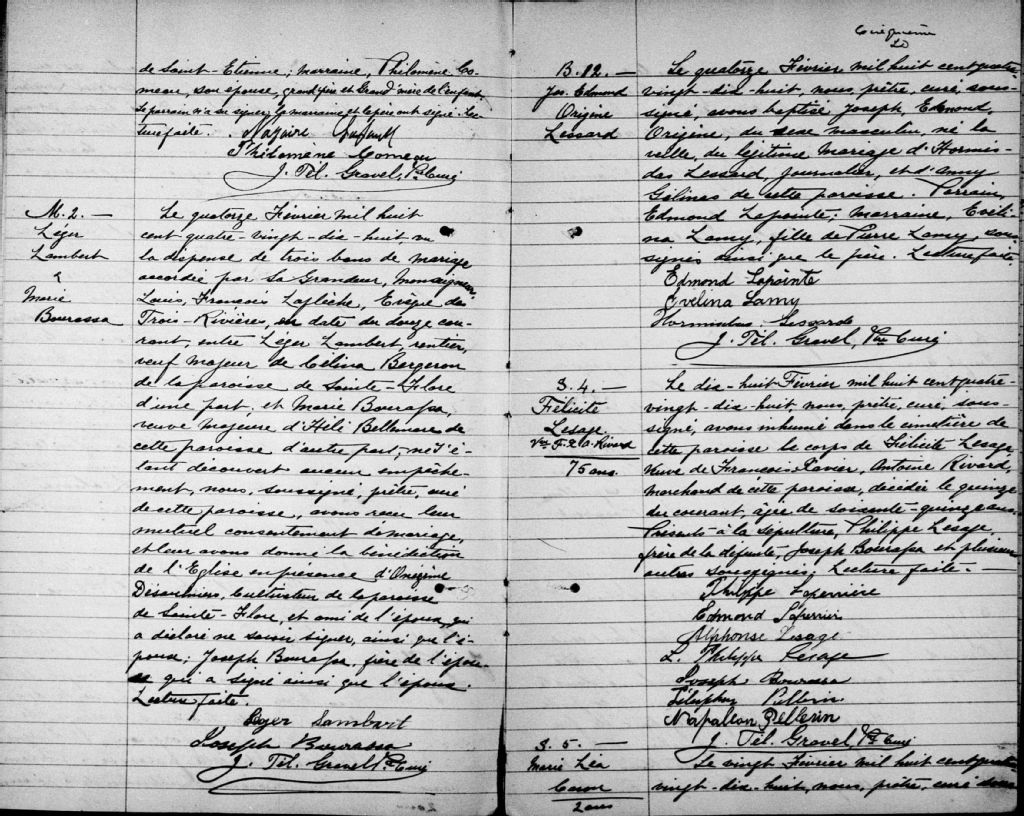 de Saint-Etienne; marraine, Philomène Co-
meau, son épouse, grand'père et Grand'mère de l'enfant.
Le parrain n'a su signer, la marraine et le père ont signé. Lec-
ture faite. Nazaire
Philomène Comeau
J. Tél. Gravel, Ptre Curé
M. 2. —
Léger
Lambert
&
Marie
Bourassa
Le quatorze Février mil huit
cent quatre-vingt-dix-huit, vu
la dispense de trois bans de mariage
accordée par Sa Grandeur, Monseigneur
Louis, François Laflèche, Evêque des
Trois-Rivières, en date du douze cou-
rant, entre Léger Lambert, rentier,
veuf majeur de Célina Bergeron
de la paroisse de Sainte-Flore
d'une part, et Marie Bourassa,
veuve majeure d'Héli Bellemare de
cette paroisse d'autre part; ne s'é-
tant découvert aucun empêche-
ment, nous, soussigné, prêtre, curé
de cette paroisse, avons reçu leur
mutuel consentement de mariage,
et leur avons donné la bénédiction
de l'Eglise en présence d'Onézime
Désaulniers, Cultivateur de la paroisse
de Sainte-Flore, et ami de l'époux, qui
a déclaré ne savoir signer, ainsi que l'é-
pouse; Joseph Bourassa, frère de l'épou-
se qui a signé ainsi que l'époux.
Lecture faite.
Léger Lambert
Joseph Bourassa
J. Tél. Gravel Ptre Curé
Cinquième
B. 12. —
Jos. Edmond
Origène
Lessard
Le quatorze Février mil huit cent quatre-
vingt-dix-huit, nous, prêtre, curé, sous-
signé, avons baptisé Joseph, Edmond
Origène, du sexe masculin, né la
veille, du légitime mariage d'Hormis-
das Lessard, journalier, et d'Anny
Gélinas de cette paroisse. Parrain,
Edmond Lapointe; marraine, Evéli-
na Lamy, fille de Pierre Lamy, sous-
signés ainsi que le père. Lecture faite.
Edmond Lapointe
Evelina Lamy
Hormisdas Lessard
J. Tél. Gravel, Ptre Curé
S. 4. —
Félicité
Lesage
Vve F. X. A. Rivard
75 ans
Le dix-huit Février mil huit cent quatre-
vingt-dix-huit, nous, prêtre, curé, sous-
signé, avons inhumé dans le cimetière de
cette paroisse le corps de Félicité Lesage,
veuve de François-Xavier, Antoine Rivard,
marchand de cette paroisse, décédée le quinze
du courant, âgée de soixante-quinze ans.
Présents à la sépulture, Philippe Lesage,
frère de la défunte, Joseph Bourassa et plusieurs
autres soussignés; Lecture faite. —
Philippe Laperrière
Edmond Laperrière
Alphonse Lesage
L. Philippe Lesage
Joseph Bourassa
Pellerin
Napoléon Pellerin
J. Tél. Gravel, Ptre Curé
S. 5. —
Marie Léa
Caron
2 ans
Le vingt Février mil huit cent quatre-
vingt-dix-huit, nous, prêtre, curé sous-